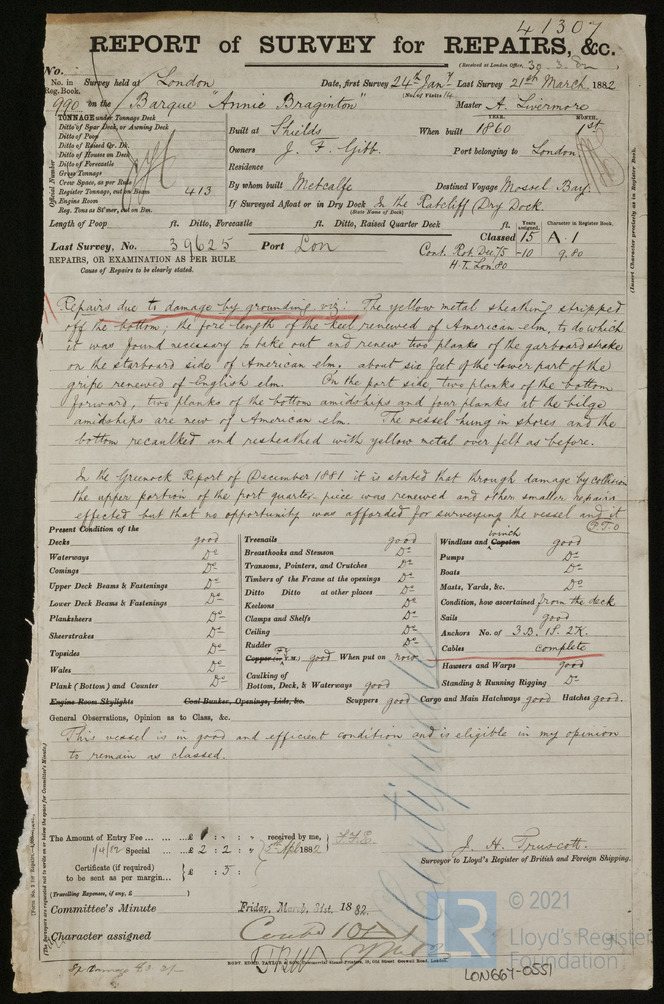 41307
REPORT of SURVEY for REPAIRS, &c.
(Received at London Office, 30.3.82
No.
No. in Reg. Book.
Survey held at London
Date, first Survey 24th Jany Last Survey 21st March 1882
(No. of Visits 14
990 on the Barque "Annie Braginton"
Master A. Livermore
TONNAGE under Tonnage Deck
Ditto of Spar Deck, or Awning Deck
Ditto of Poop
Ditto of Raised Qr. Dk.
Ditto of Houses on Deck
Ditto of Forecastle
Gross Tonnage
Crew Space, as per Rule
Register Tonnage, cut on Beam 413
Engine Room
Reg. Tons as St'mer, cut on Bm.
Official Number
YEAR. MONTH.
Built at Shields When built 1860 1st
Owners J. F. Gibb. Port belonging to London
Residence
By whom built Metcalfe Destined Voyage Mossel Bay.
If Surveyed Afloat or in Dry Dock In the Ratcliff Dry Dock.
(State Name of Dock)
Length of Poop ft. Ditto, Forecastle ft. Ditto, Raised Quarter Deck ft.
Years assigned. Character in Register Book.
Last Survey, No. 39625 Port Lon
Classed 15 A.1
Cont. Rot. Dec. 75 -10 9.80
H.T. Lon. 80
REPAIRS, OR EXAMINATION AS PER RULE
Cause of Repairs to be clearly stated.
(Insert Character precisely as in Register Book.
Repairs due to damage by grounding viz: The yellow metal sheathing stripped
off the bottom; the fore length of the keel renewed of American elm, to do which
it was found necessary to take out and renew two planks of the garboard strake
on the starboard side of American elm. about six feet of the lower part of the
gripe renewed of English elm. On the port side, two planks of the bottom
forward, two planks of the bottom amidships and four planks at the bilge
amidships are new of American elm. The vessel hung in shores and the
bottom recaulked and resheathed with yellow metal over felt as before.
In the Greenock Report of December 1881 it is stated that through damage by collision
the upper portion of the port quarter-piece was renewed and other smaller repairs
effected but that no opportunity was afforded for surveying the vessel and it
P.T.O
Present Condition of the
Decks good
Waterways Do
Comings Do
Upper Deck Beams & Fastenings Do
Lower Deck Beams & Fastenings Do
Planksheers Do
Sheerstrakes Do
Topsides Do
Wales Do
Plank (Bottom) and Counter Do
Treenails good
Breasthooks and Stemson Do
Transoms, Pointers, and Crutches Do
Timbers of the Frame at the openings Do
Ditto Ditto at other places Do
Keelsons Do
Clamps and Shelfs Do
Ceiling Do
Rudder Do
Copper (or Y.M.) good When put on now
Caulking of
Bottom, Deck, & Waterways good
winch
Windlass and Capstan good
Pumps Do
Boats Do
Masts, Yards, &c. Do
Condition, how ascertained from the deck
Sails good
Anchors No. of 3.B. 1S. 2K.
Cables complete
Hawsers and Warps good
Standing & Running Rigging Do
Engine Room Skylights Coal Bunker, Openings, Lids, &c. Scuppers good Cargo and Main Hatchways good Hatches good.
General Observations, Opinion as to Class, &c.
This vessel is in good and efficient condition and is eligible in my opinion
to remain as classed.
The Amount of Entry Fee ... ... £ : : received by me,
1/4/82 Special ... £ 2 : 2 : " 5th Apl 1882
Certificate (if required)
to be sent as per margin... £ : 5 :
(Travelling Expenses, if any, £ )
J. H. Truscott.
Surveyor to Lloyd's Register of British and Foreign Shipping.
Committee's Minute Friday, March 31st, 1882.
Character assigned
ROBT. EDMD. TAYLOR & SON, Commercial Steam Printers, 19, Old Street, Goswell Road, London.
© 2021
LR
Lloyd's Register
Foundation
LON667-0551